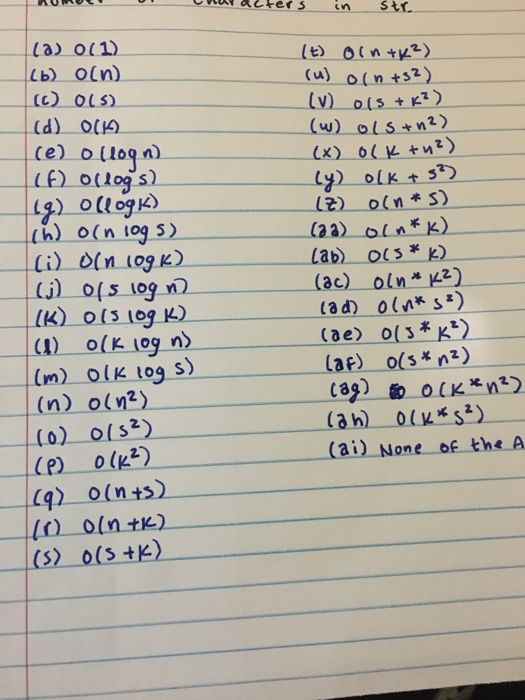 characters in str.
(a) O(1)
(b) O(n)
(c) O(s)
(d) O(K)
(e) O(log n)
(f) O(log s)
(g) O(logK)
(h) O(n log s)
(i) O(n log K)
(j) O(s log n)
(K) O(s log K)
(l) O(K log n)
(m) O(K log s)
(n) O(n²)
(o) O(s²)
(p) O(K²)
(q) O(n+s)
(r) O(n+K)
(s) O(s+K)
(t) O(n+K²)
(u) O(n+s²)
(v) O(s+K²)
(w) O(s+n²)
(x) O(K+n²)
(y) O(K+s²)
(z) O(n*s)
(aa) O(n*K)
(ab) O(s*K)
(ac) O(n*K²)
(ad) O(n*s²)
(ae) O(s*K²)
(af) O(s*n²)
(ag) O(K*n²)
(ah) O(K*s²)
(ai) None of the A